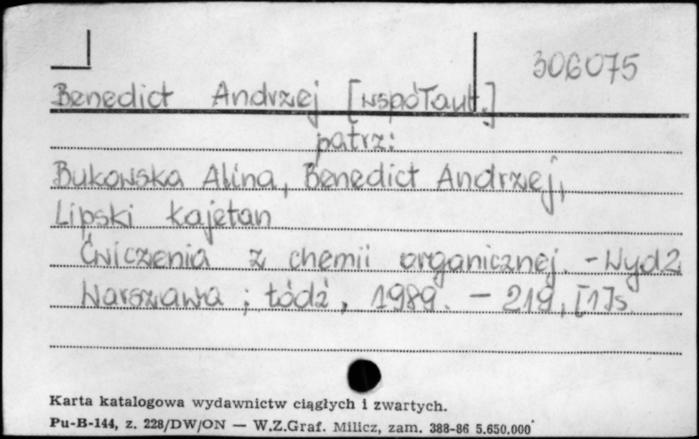 306075
Benedict Andrzej [współaut.]
patrz:
Bukowska Alina, Benedict Andrzej,
Lipski Kajetan
Ćwiczenia z chemii organicznej. - Wyd 2
Warszawa ; Łódź, 1989. - 219, [1] s.
Karta katalogowa wydawnictw ciągłych i zwartych.
Pu-B-144, z. 228/DW/ON — W.Z.Graf. Milicz, zam. 388-86 5.650.000